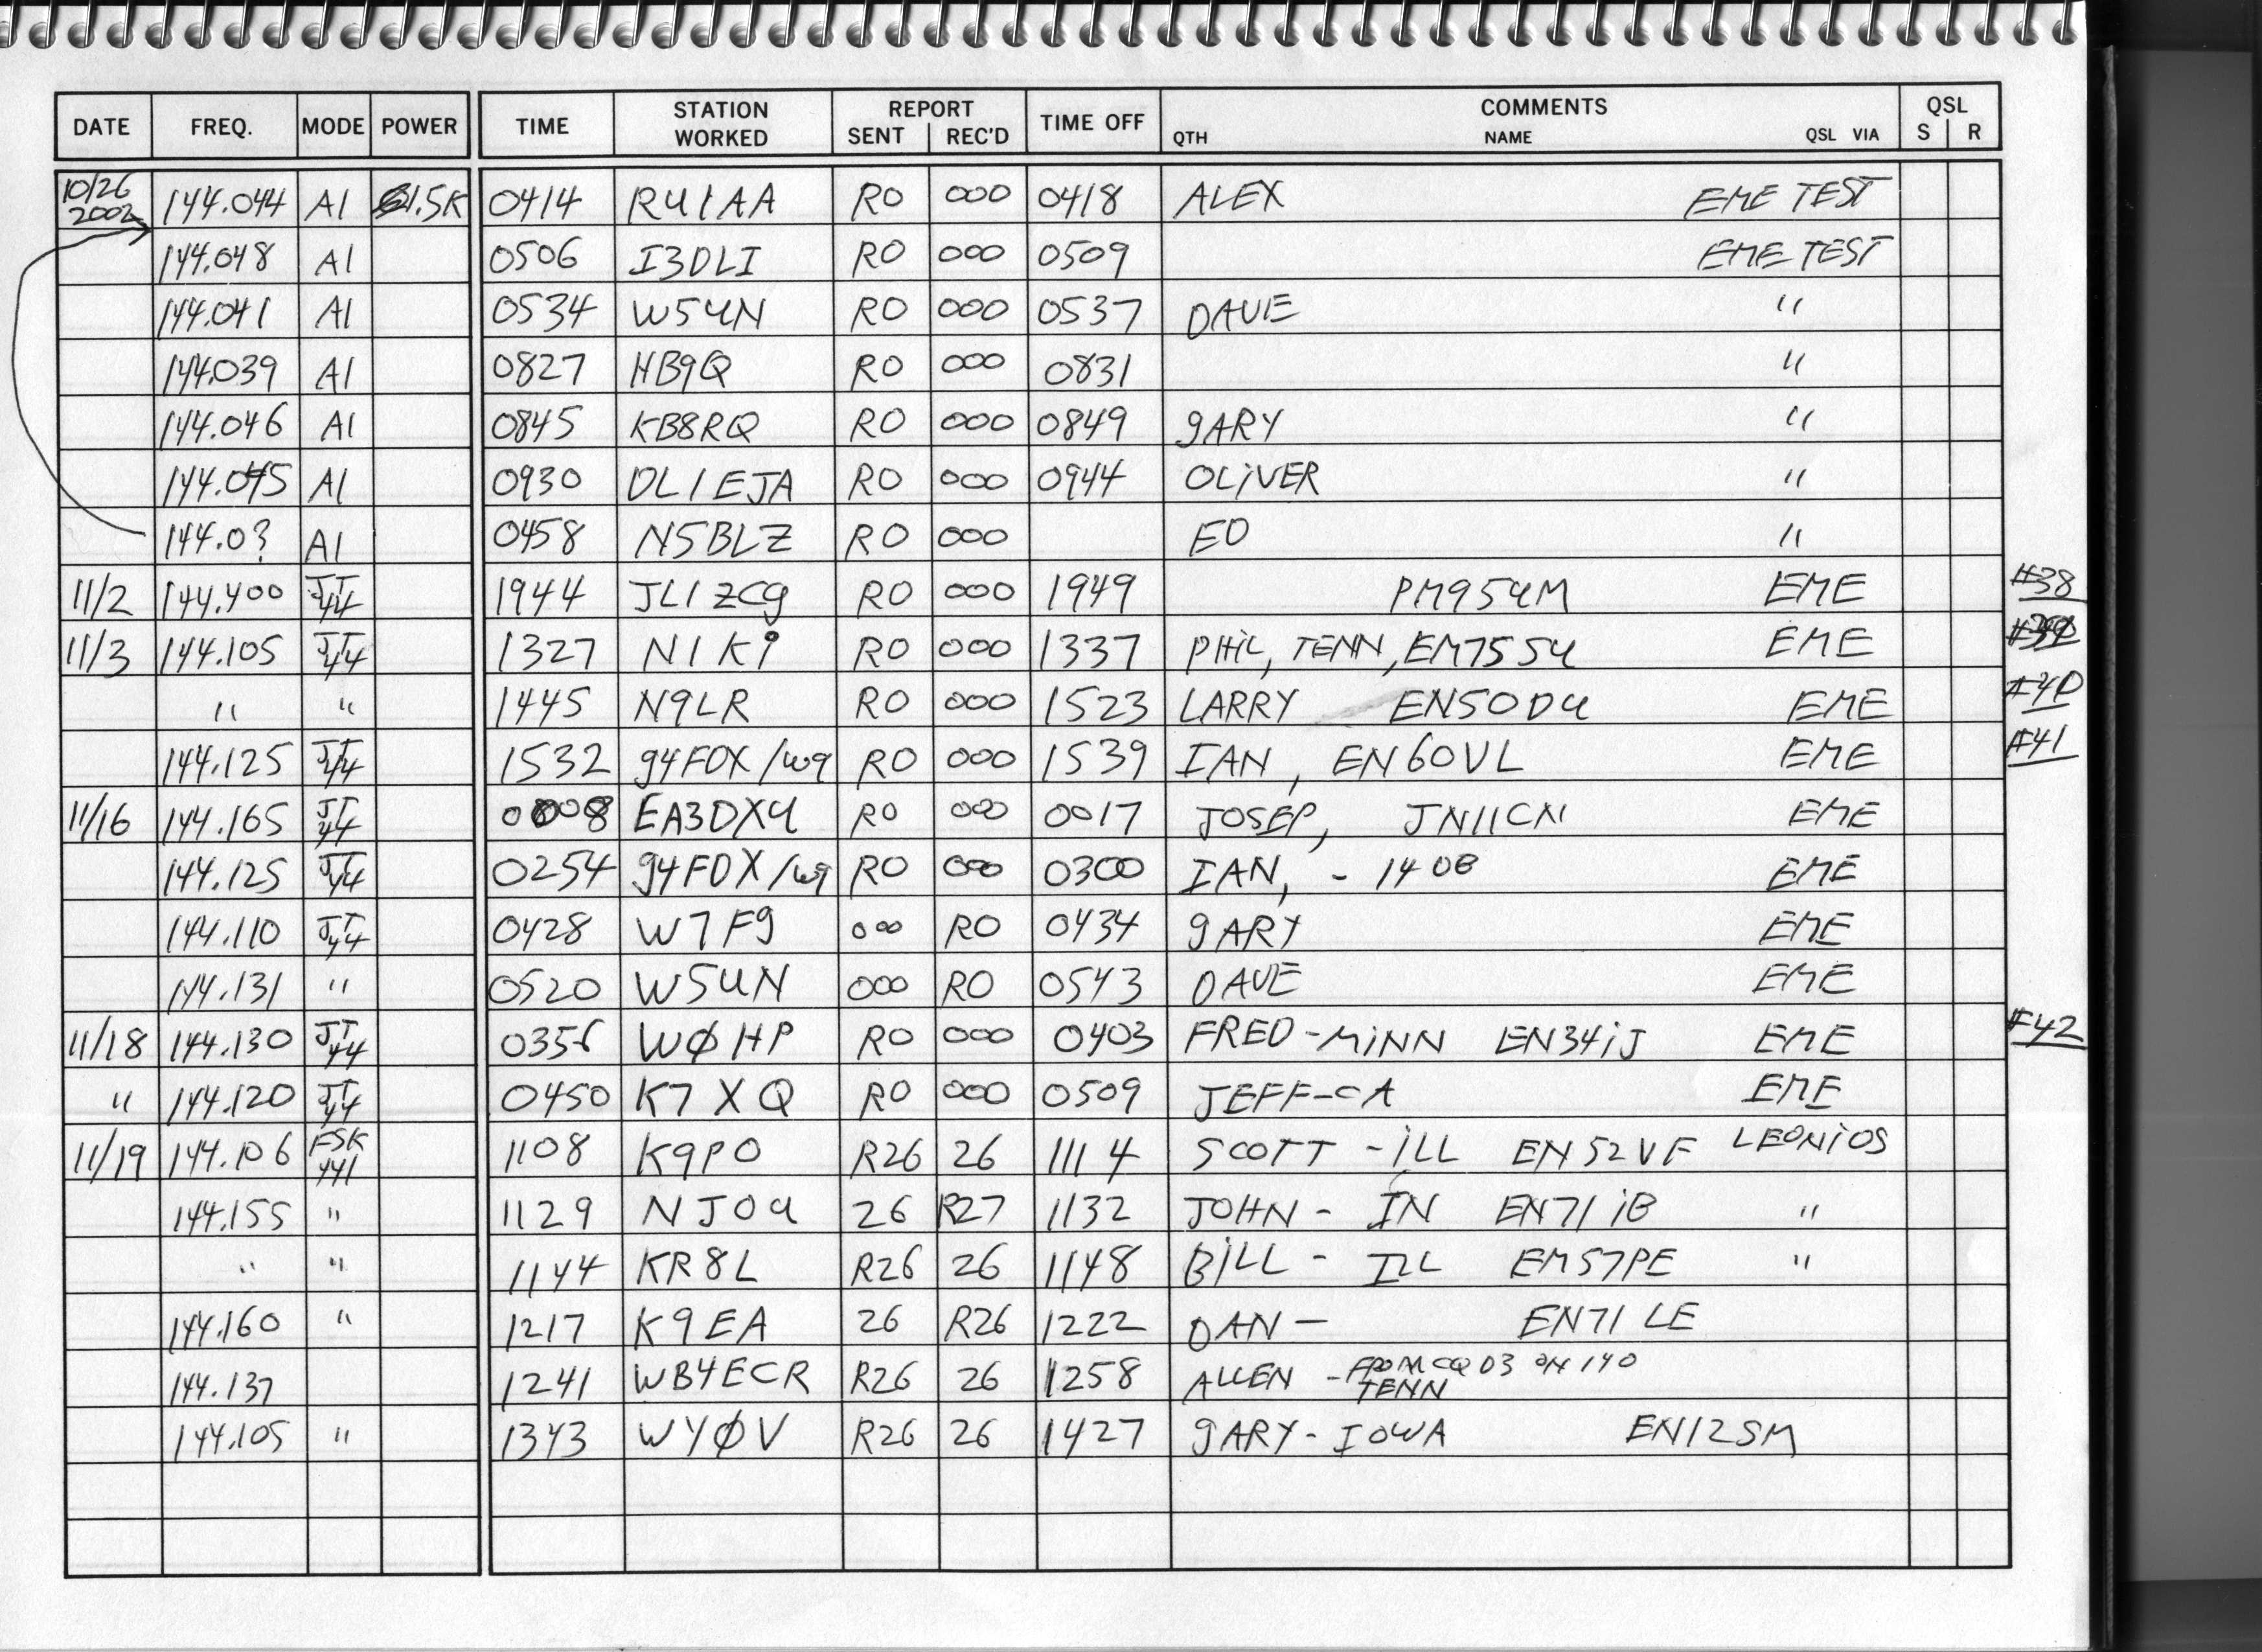 DATE FREQ. MODE POWER TIME STATION WORKED REPORT SENT REC'D TIME OFF COMMENTS QTH NAME QSL VIA QSL S R
10/26 2002 144.044 A1 1.5K 0414 RU1AA RO 000 0418 ALEX EME TEST
144.048 A1 0506 I3DLI RO 000 0509 EME TEST
144.041 A1 0534 W5UN RO 000 0537 DAVE "
144.039 A1 0827 HB9Q RO 000 0831 "
144.046 A1 0845 KB8RQ RO 000 0849 GARY "
144.045 A1 0930 DL1EJA RO 000 0944 OLiVER "
144.03? A1 0458 N5BLZ RO 000 ED "
11/2 144.400 JT44 1944 JL1ZCG RO 000 1949 PM95UM EME #38
11/3 144.105 JT44 1327 N1K9 RO 000 1337 PHiL, TENN, EM75SU EME
" " 1445 N9LR RO 000 1523 LARRY EN50DU EME #40
144.125 JT44 1532 G4FDX/W9 RO 000 1539 IAN, EN60VL EME #41
11/16 144.165 JT44 0008 EA3DXU RO 000 0017 JOSEP, JN11CN EME
144.125 JT44 0254 G4FDX/W9 RO 000 0300 IAN, -14DB EME
144.110 JT44 0428 W7FG 000 RO 0434 GARY EME
144.131 " 0520 W5UN 000 RO 0543 DAVE EME
11/18 144.130 JT44 0356 WØHP RO 000 0403 FRED-MiNN EN34iJ EME #42
" 144.120 JT44 0450 K7XQ RO 000 0509 JEFF-CA EME
11/19 144.106 FSK441 1108 K9PO R26 26 1114 SCOTT -iLL EN52VF LEONiDS
144.155 " 1129 NJ0U 26 R27 1132 JOHN - IN EN71iB "
" " 1144 KR8L R26 26 1148 BiLL - ILL EM57PE "
144.160 " 1217 K9EA 26 R26 1222 DAN - EN71LE
144.137 1241 WB4ECR R26 26 1258 ALLEN - FROM CQ D3 ON 140 TENN
144.105 " 1343 WYØV R26 26 1427 GARY - IOWA EN12SM